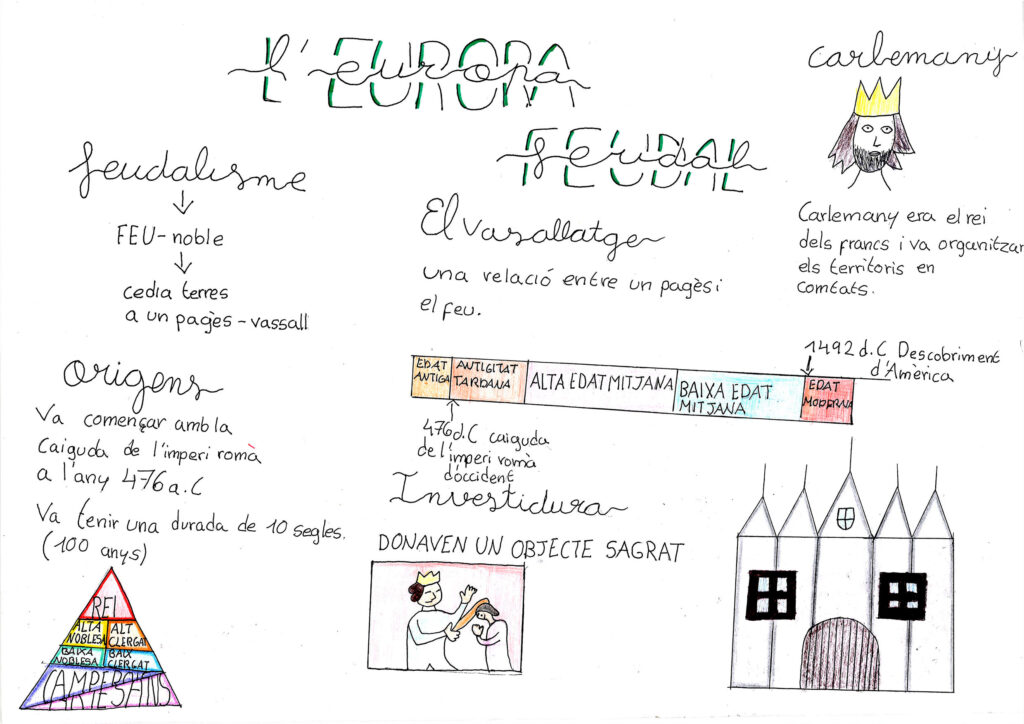 l'EUROPA
l'europa
FEUDAL
feudal
carlemany
Carlemany era el rei
dels francs i va organitzar
els territoris en
comtats.
feudalisme
FEU-noble
cedia terres
a un pagès-vassall
El Vasallatge
una relació entre un pagès i
el feu.
EDAT
ANTIGA
ANTIGITAT
TARDANA
ALTA EDAT MITJANA
BAIXA EDAT
MITJANA
EDAT
MODERNA
1492 d.C Descobriment
d'Amèrica
476 d.C caiguda
de l'imperi romà
d'occident
origens
Va començar amb la
Caiguda de l'imperi romà
a l'any 476 a.C
Va tenir una durada de 10 segles.
(100 anys)
REI
ALTA
NOBLESA
ALT
CLERGAT
BAIXA
NOBLESA
BAIX
CLERGAT
CAMPEROLS
Investidura
DONAVEN UN OBJECTE SAGRAT